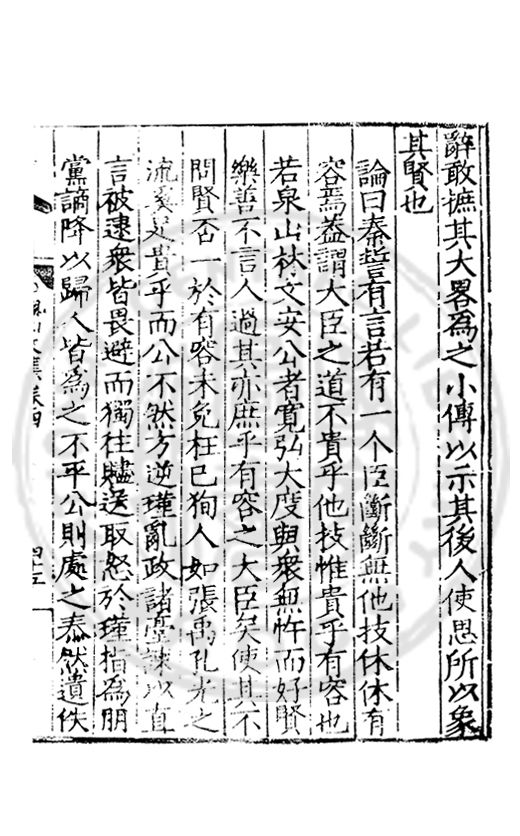 辭敢摭其大畧為之小傳以示其後人使思所以象
其賢也
論曰秦誓有言若有一个臣斷斷無他技休休有
容焉葢謂大臣之道不貴乎他技惟貴乎有容也
若泉山林文安公者寛弘大度與衆無忤而好賢
樂善不言人過其亦庶乎有容之大臣矣使其不
問賢否一於有容未免枉已狥人如張禹孔光之
流奚足貴乎而公不然方逆瑾亂政諸臺諫以直
言被逮衆皆畏避而獨往贐送取怒於瑾指為朋
黨謫降以歸人皆為之不平公則處之泰然遺佚
集卷四
四十五